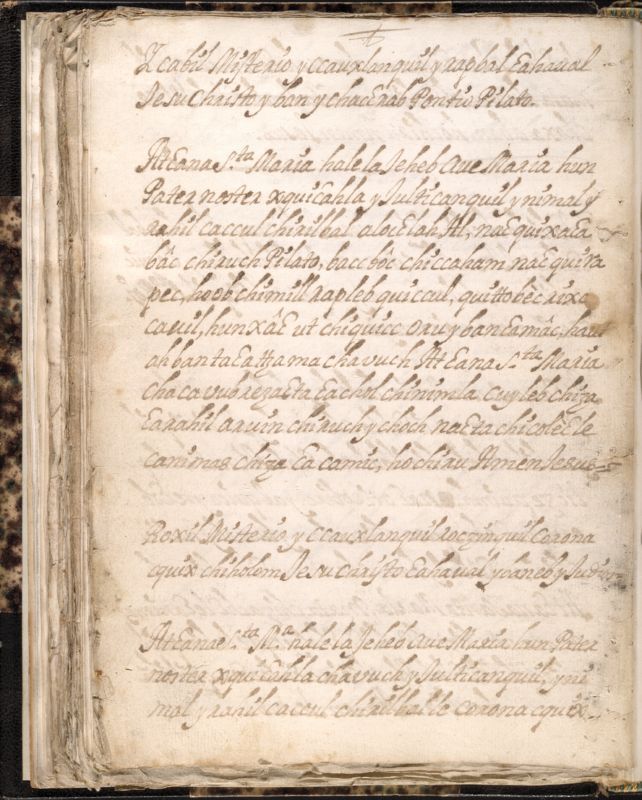 Xcabil Misterio y ccauxlanquil y rapbal Eahaual
Jesu Christo y ban y chacErab Pontio Pilato.
At Eana S.ta Maria hale la Jeheb Aue Maria hun
Pater noster xquicahla y Julticanquil y nimal y
rahil caccul chirilbal
bâc chiruch Pilato, bacc bôc chiccaham naE quira
pec, hoob chimill rapleb quiccul, quittobêc rixc
cauil, hunxâE ut chiquicc oru y ban Eamâc, haut
ah ban taEattama chavuch At Eana S.ta Maria
chacavubreyaEta Eachol chinimla cuyleb chiza
Earahil aruin chiruch y choch naEta chicoleEle
canimas chiza Ea camic, ho chiru Amen Jesus
Roxil Misterio y ccauxlanquil rocginquil Corona
cquix chiholem Jesu Christo Eahaual y baneb y Judios
At Eana S.ta M.a hale la Jeheb Aue Maria hun Pater
noster xquicahla chavuch y Julticanquil, y ni
mal y rahil caccul chirilbal le corona cquix